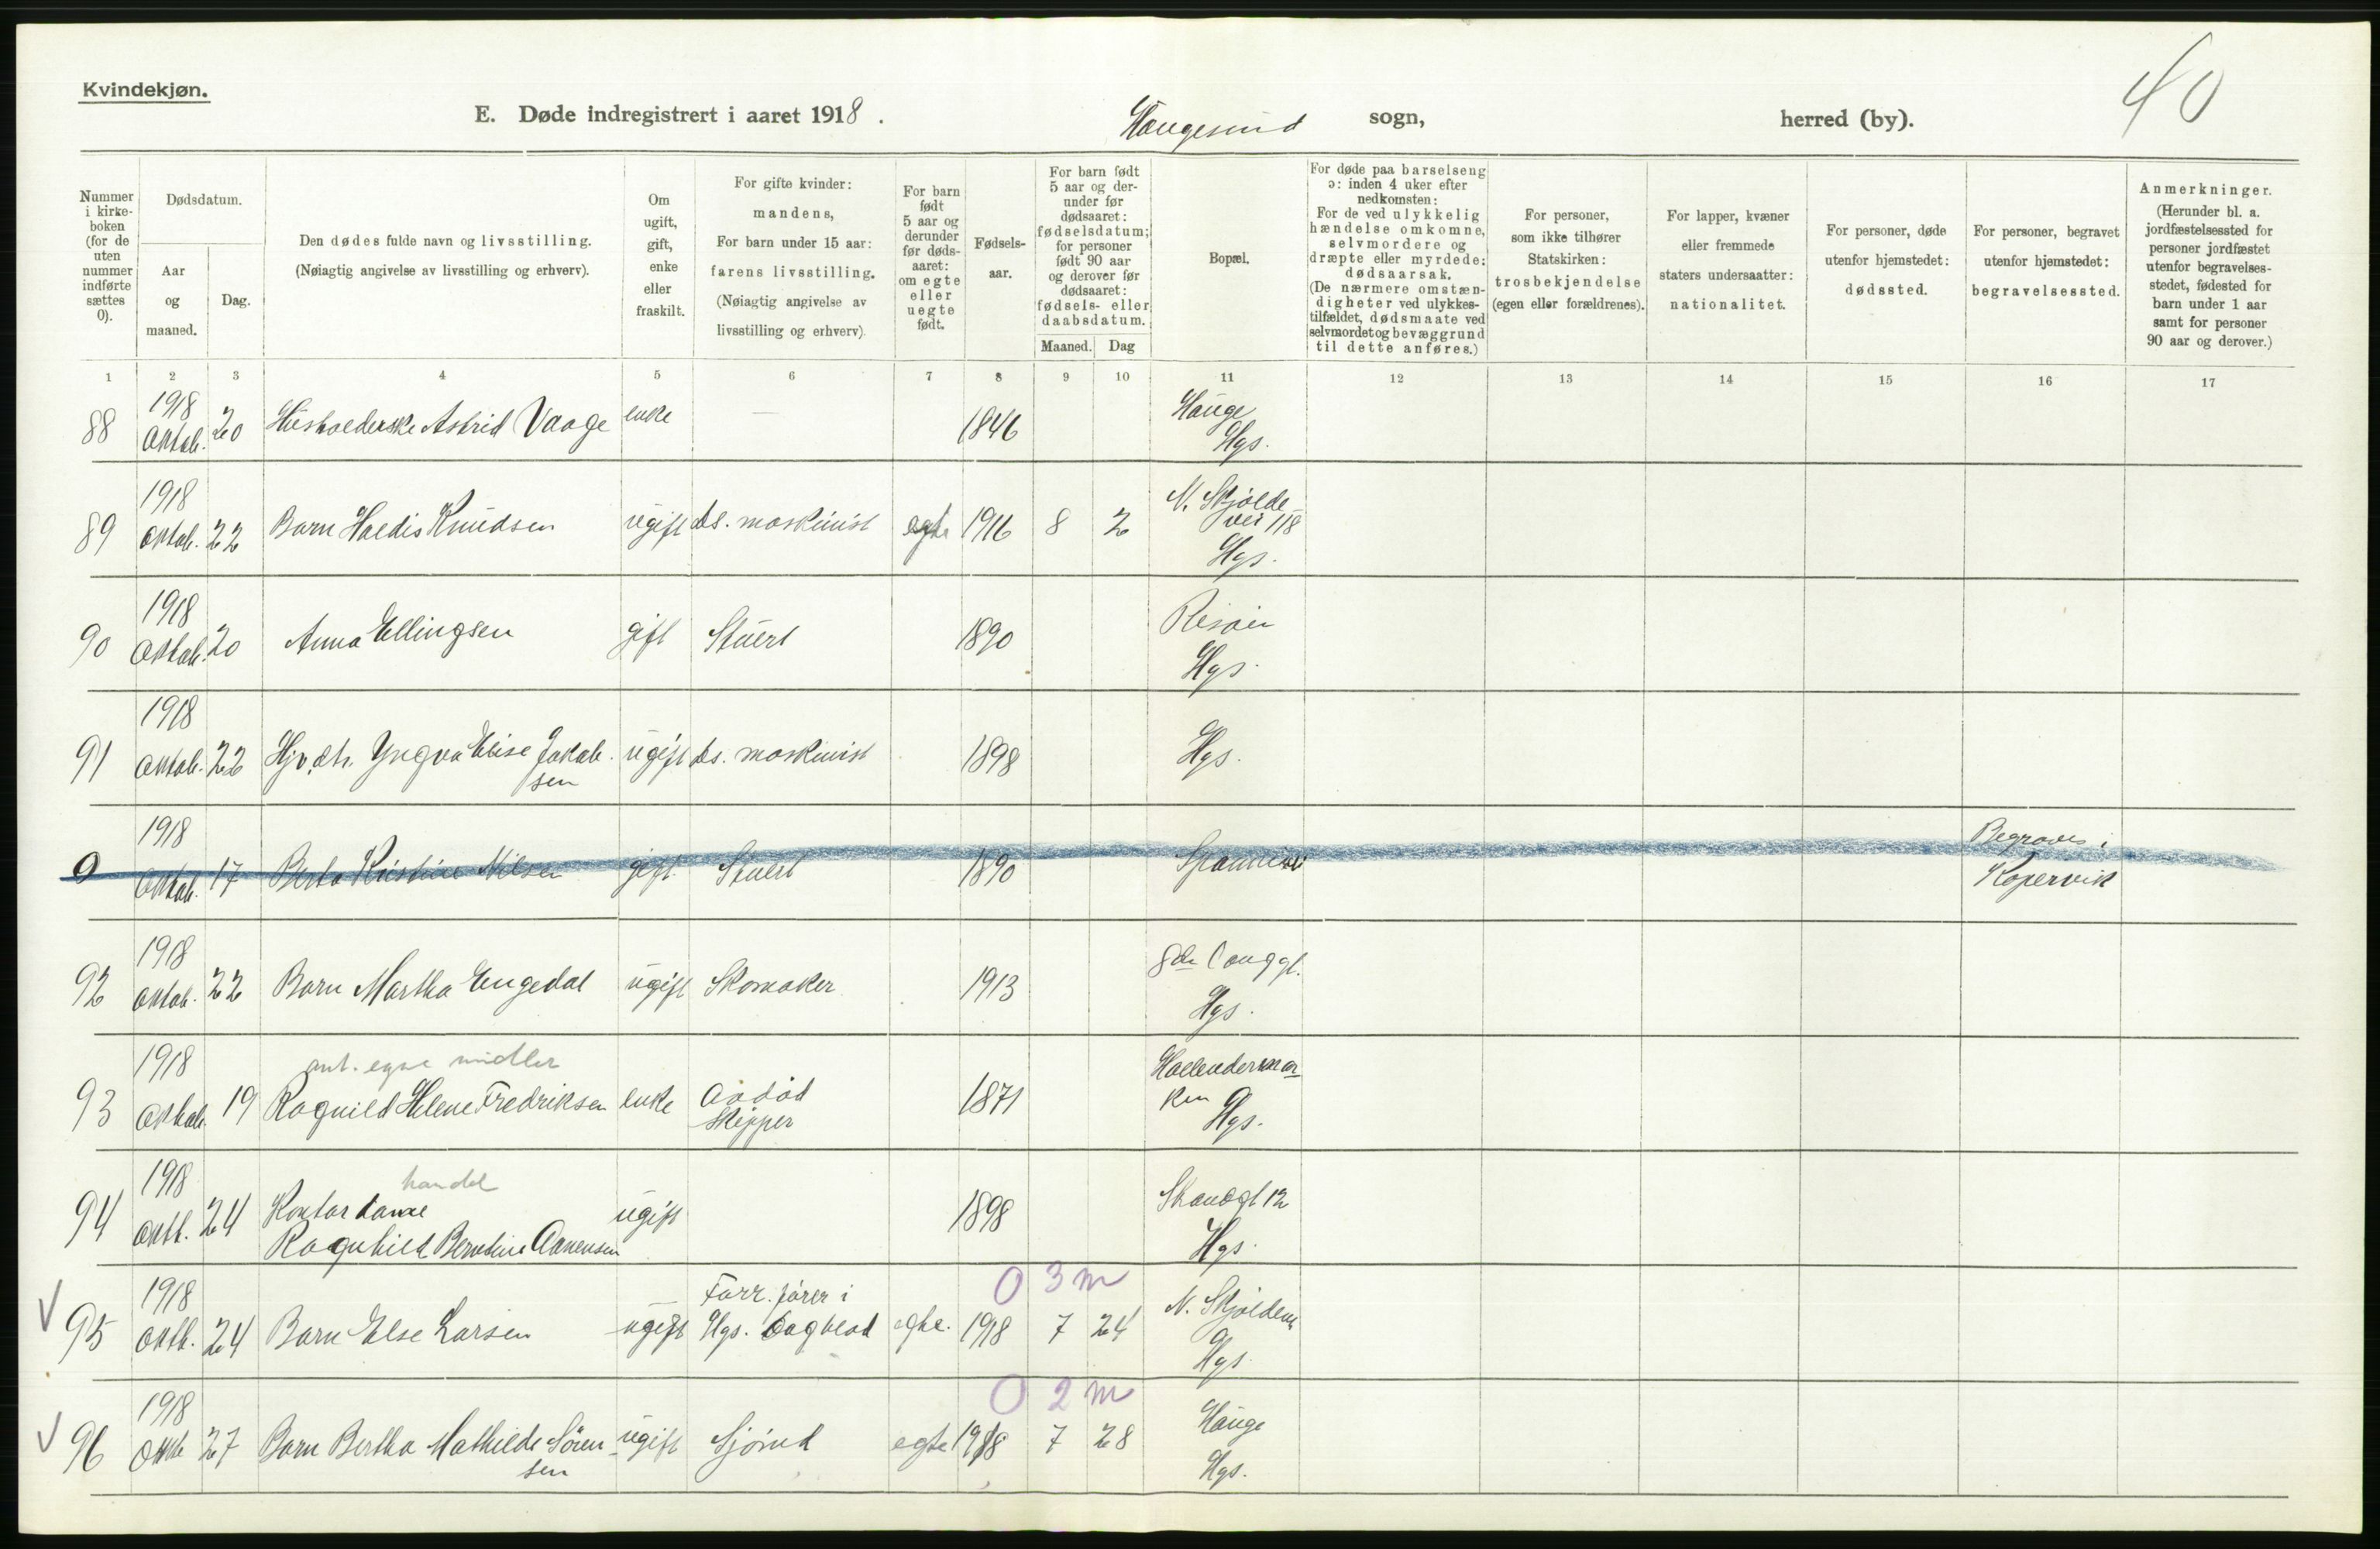 Kvindekjøn.
40
E. Døde indregistrert i aaret 1918. Haugesund sogn, herred (by).
Nummer i kirke-boken (for de uten nummer indførte sættes 0).
Dødsdatum.
Aar og maaned.
Dag.
Den dødes fulde navn og livsstilling.
(Nøiagtig angivelse av livsstilling og erhverv).
Om ugift, gift, enke eller fraskilt.
For gifte kvinder: mandens,
For barn under 15 aar: farens livsstilling.
(Nøiagtig angivelse av livsstilling og erhverv).
For barn født 5 aar og derunder før døds-aaret: om egte eller uegte født.
Fødsels-aar.
For barn født 5 aar og der-under før dødsaaret: fødselsdatum; for personer født 90 aar og derover før dødsaaret: fødsels- eller daabsdatum.
Maaned. Dag
Bopæl.
For døde paa barselseng ɔ: inden 4 uker efter nedkomsten:
For de ved ulykkelig hændelse omkomne, selvmordere og dræpte eller myrdede: dødsaarsak.
(De nærmere omstæn-digheter ved ulykkes-tilfældet, dødsmaate ved selvmordet og bevæggrund til dette anføres.)
For personer, som ikke tilhører Statskirken: trosbekjendelse (egen eller forældrenes).
For lapper, kvæner eller fremmede staters undersaatter: nationalitet.
For personer, døde utenfor hjemstedet: dødssted.
For personer, begravet utenfor hjemstedet: begravelsessted.
Anmerkninger.
(Herunder bl. a. jordfæstelsessted for personer jordfæstet utenfor begravelses-stedet, fødested for barn under 1 aar samt for personer 90 aar og derover.)
1 2 3 4 5 6 7 8 9 10 11 12 13 14 15 16 17
88 1918 Oktob. 20 Husholderske Astrid Vaage enke — 1846 Hauge Hgs.
89 1918 Oktob. 22 Barn Haldis Knudsen ugift ds. maskinist egte 1916 8 2 N. Skjolde-vei 118 Hgs.
90 1918 Oktob. 20 Anna Ellingsen gift Stuert 1890 Risøen Hgs.
91 1918 Oktob. 22 Hjv. dtr. Yngva Elise Jakob-sen ugift ds. maskinist 1898 Hgs.
0 1918 Oktob. 17 Berta Kristine Nilsen gift Stuert 1890 Begraves i Kopervik
92 1918 Oktob. 22 Barn Martha Engedal ugift Skomaker 1913 Hgs.
ant. egne midler
93 1918 Oktob. 19 Ragnild Helene Fredriksen enke Avdød Skipper 1871 Hollendermar-ken Hgs.
handel
94 1918 Oktb. 24 Kontordame Ragnhild Berntine Aanensen ugift 1898 Strandgt 12 Hgs.
0 3 m
95 1918 Oktb. 24 Barn Else Larsen ugift Forr.fører i Hgs. Dagblad egte. 1918 7 24 N. Skjoldevei Hgs.
0 2 m
96 1918 Oktb 27 Barn Bertha Mathilde Sören-sen ugift Sjömd egte 1918 7 28 Hauge Hgs.